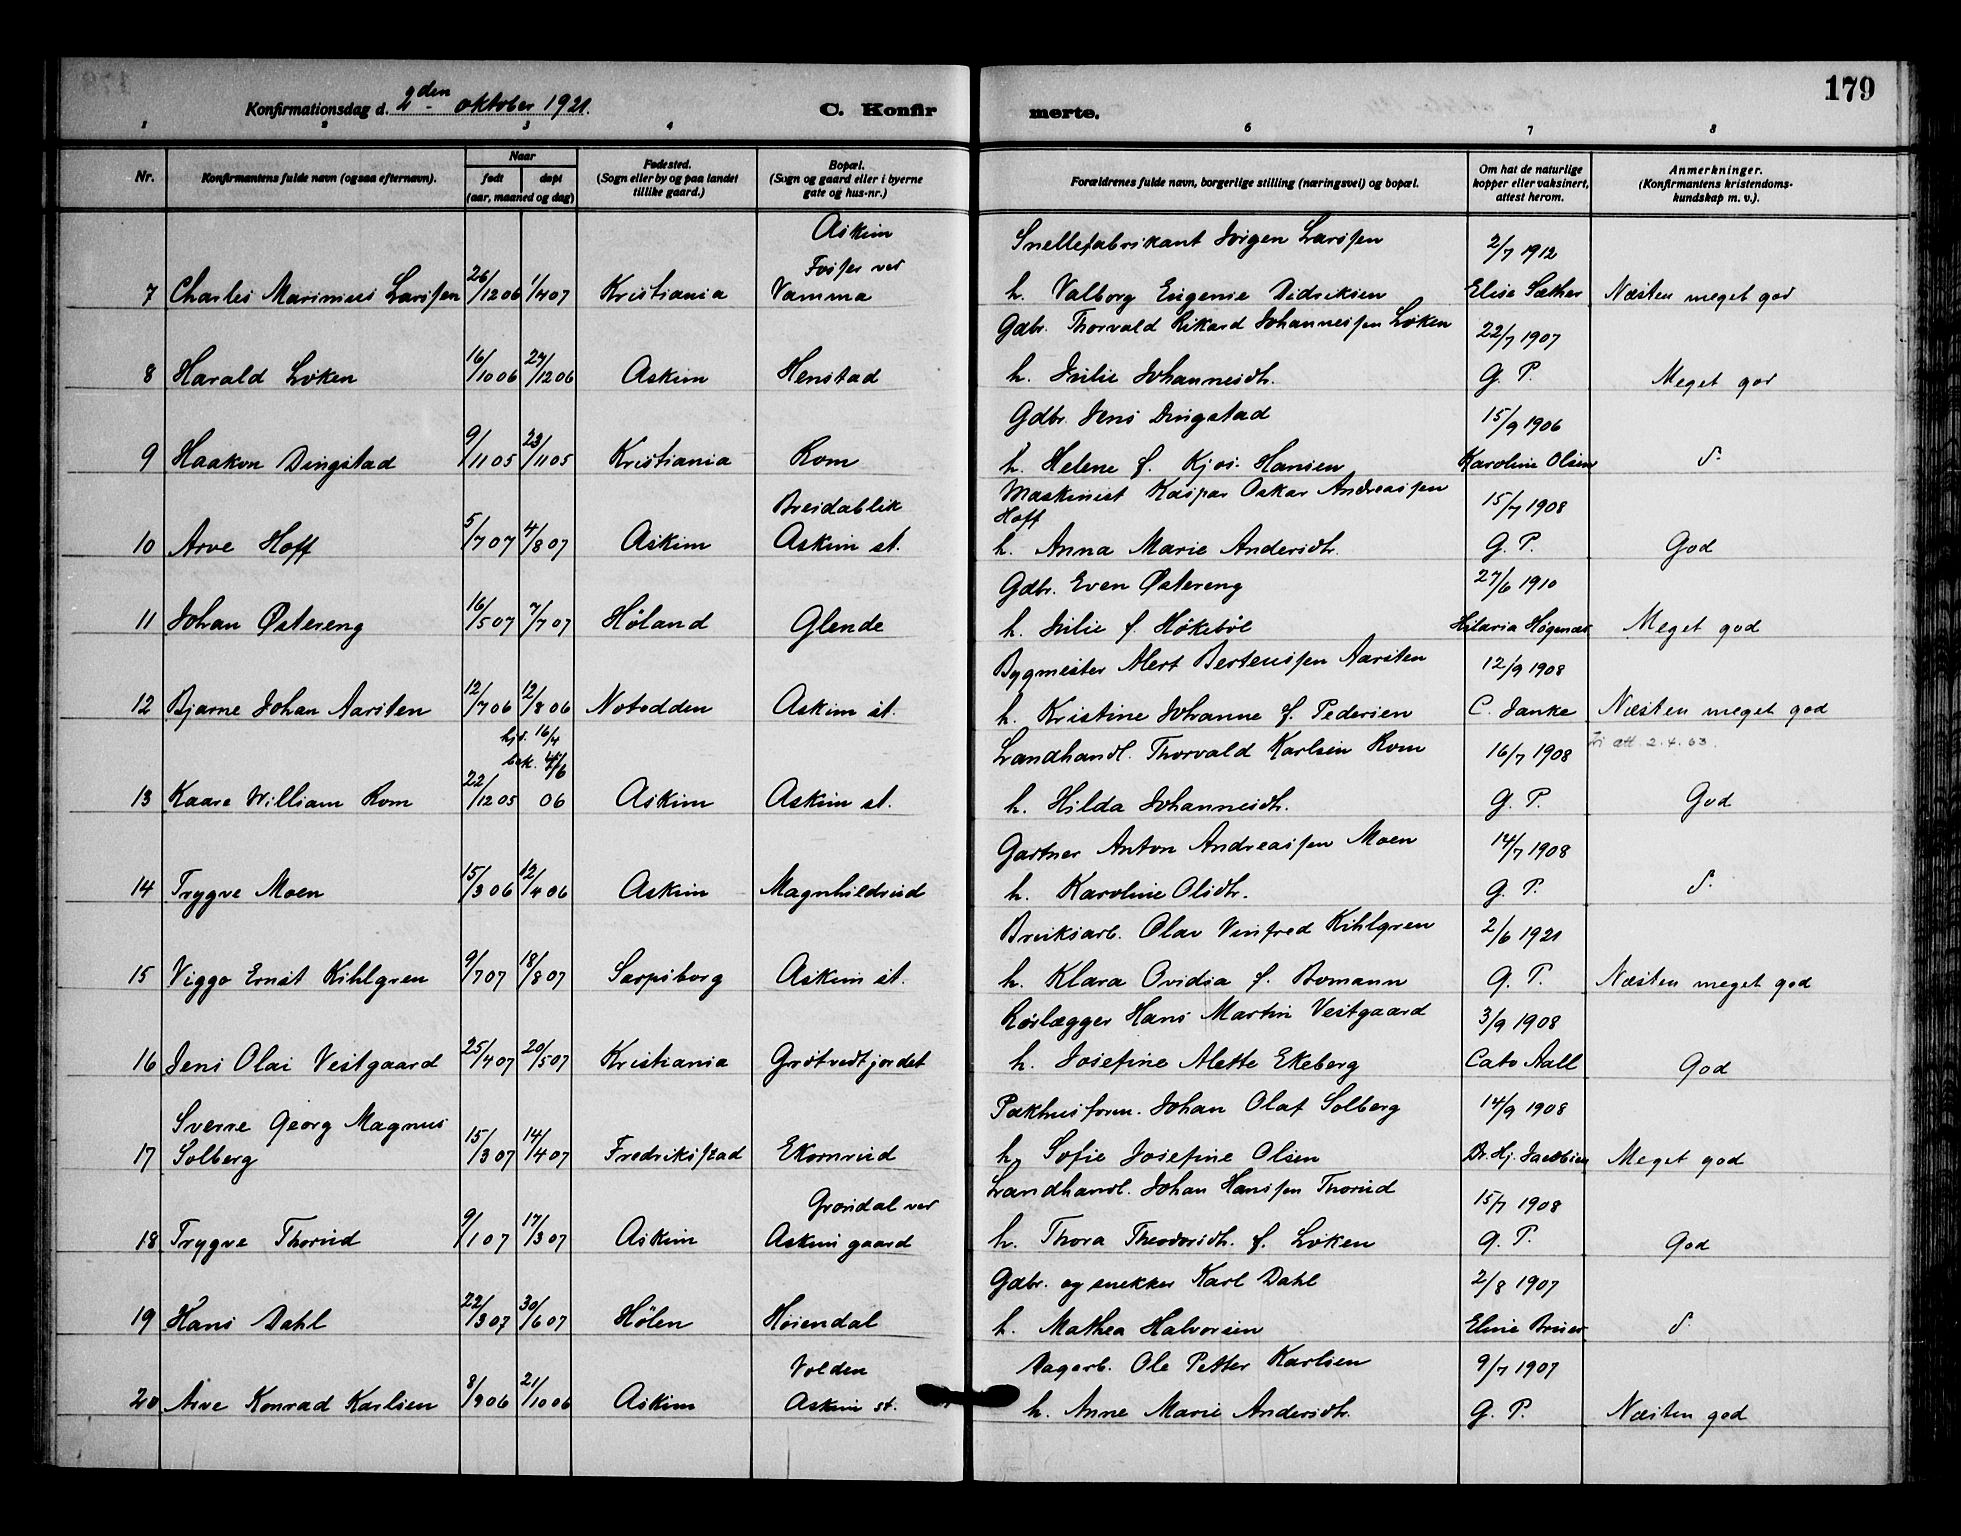 179
Konfirmationsdag d. 2den oktober 1921.
C. Konfirmerte.
1 2 3 4 6 7 8
Nr.
Konfirmantens fulde navn (ogsaa efternavn).
Naar
født
døpt
(aar, maaned og dag)
Fødested.
(Sogn eller by og paa landet
tillike gaard.)
Bopæl.
(Sogn og gaard eller i byerne
gate og hus-nr.)
Forældrenes fulde navn, borgerlige stilling (næringsvei) og bopæl.
Om hat de naturlige
kopper eller vaksinert,
attest herom.
Anmerkninger.
(Konfirmantens kristendoms-
kundskap m. v.).
Askim
Fosser ved
Snellefabrikant Jörgen Larssen 2/7 1912
7 Charles Marinius Larssen 26/12 06 1/4 07 Kristiania Vamma h. Valborg Eugenie Didriksen Elise Sæther Næsten meget god
Gdbr. Thorvald Rikard Johannessen Løken 22/7 1907
8 Harald Løken 16/10 06 27/12 06 Askim Henstad h. Julie Johannesdtr. G. P. Meget god
Gdbr. Jens Dingstad 15/9 1906
9 Haakon Dingstad 9/11 05 23/11 05 Kristiania Rom h. Helene f. Kjos-Hansen Karoline Olsen d.
Breidablik Maskinist Kaspar Oskar Andreassen 15/7 1908
Hoff
10 Arve Hoff 5/7 07 4/8 07 Askim Askim st. h. Anna Marie Andersdtr. G. P. God
Gdbr. Even Østereng 27/6 1910
11 Johan Østereng 16/5 07 7/7 07 Høland Glende h. Julie f. Høkebøl Hilaria Høgenæs Meget god
Bygmester Alert Bertenssen Aarsten 12/9 1908
12 Bjarne Johan Aarsten 12/7 06 12/8 06 Notodden Askim st. h. Kristine Johanne f. Pedersen C. Janke Næsten meget god
hjd. 16/4
bek.
Landhandl. Thorvald Karlsen Rom 16/7 1908 att. 2.4.63.
13 Kaare William Rom 22/12 05 06 Askim Askim st. h. Hilda Johannesdtr. G. P. God
Gartner Anton Andreassen Moen 14/7 1908
14 Trygve Moen 15/3 06 12/4 06 Askim Magnhildrud h. Karoline Olsdtr. G. P. d.
Bruksarb. Olav Vinfred Kihlgren 2/6 1921
15 Viggo Ernst Kihlgren 9/7 07 18/8 07 Sarpsborg Askim st. h. Klara Ovidia f. Bomann G. P. Næsten meget god
Rørlægger Hans Martin Vestgaard 3/9 1908
16 Jens Olai Vestgaard 25/4 07 20/5 07 Kristiania Grøtvedtjordet h. Josefine Alette Ekeberg Cato Aall God
Sverre Georg Magnus Pakhusform. Johan Olaf Solberg 14/9 1908
17 Solberg 15/3 07 14/4 07 Fredriksstad Ekornrud h. Sofie Josefine Olsen Dr. Hj. Jacobsen Meget god
Grøndal ved Landhandl. Johan Hanssen Thorud 15/7 1908
18 Trygve Thorud 9/1 07 17/3 07 Askim Askim gaard h. Thora Theodorsdtr. f. Løken G. P. God
Gdbr. og snekker Karl Dahl 2/8 1907
19 Hans Dahl 22/3 07 30/6 07 Hølen Høiendal h. Mathea Halvorsen Eline Bruer d.
Volden Dagarb. Ole Petter Karlsen 9/7 1907
20 Arve Konrad Karlsen 8/9 06 21/10 06 Askim Askim st. h. Anne Marie Andersdtr. G. P. Næsten god